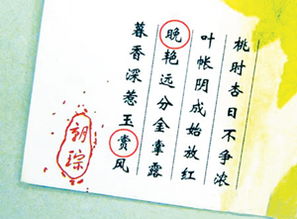 桃时杏日不争浓
叶帐阴成始放红
晚艳远分金掌露
暮香深惹玉赏风